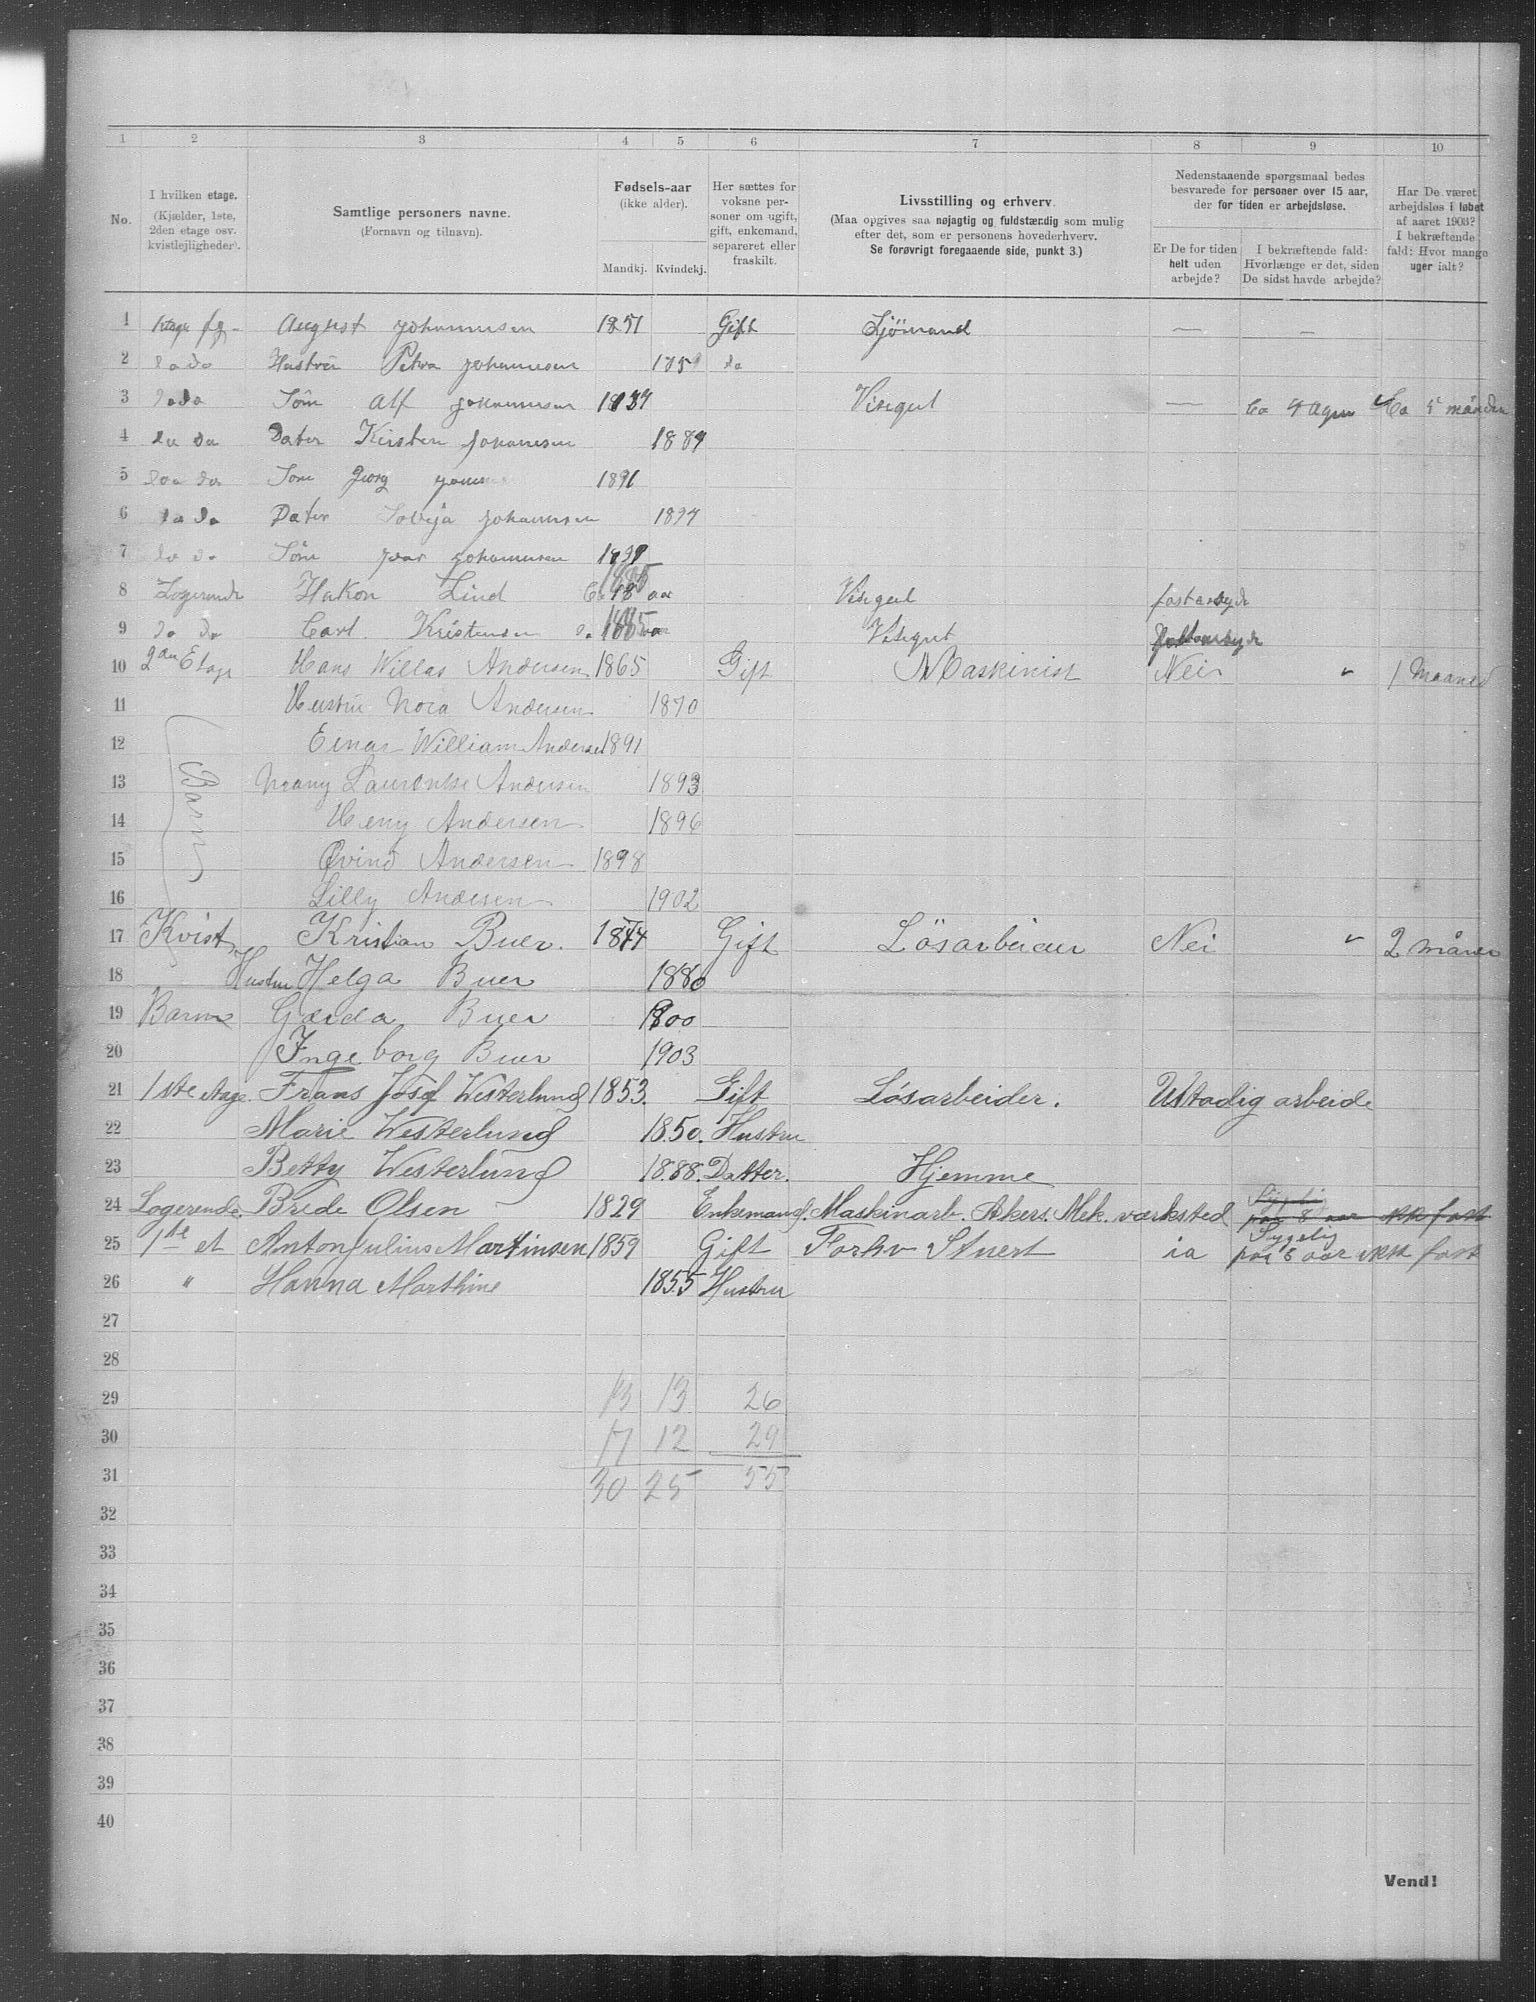 1 2 3 4 5 6 7 8 9 10
No. I hvilken etage. (Kjælder, 1ste, 2den etage osv. kvistlejligheder). Samtlige personers navne. (Fornavn og tilnavn). Fødsels-aar (ikke alder). Mandkj. Kvindekj. Her sættes for voksne personer om ugift, gift, enkemand, separeret eller fraskilt. Livsstilling og erhverv. (Maa opgives saa nøjagtig og fuldstændig som mulig efter det, som er personens hovederhverv. Se forøvrigt foregaaende side, punkt 3.) Nedenstaaende spørgsmaal bedes besvarede for personer over 15 aar, der for tiden er arbejdsløse. Er De for tiden helt uden arbejde? I bekræftende fald: Hvorlænge er det, siden De sidst havde arbejde? Har De været arbejdsløs i løbet af aaret 1903? I bekræftende fald: Hvor mange uger ialt?
1 August Johannesen 1851 Gift Sjömand — —
2 do do Hustru Petra Johannesen do
3 do do Sön Alf Johannesen Visegut — Ca Ca 5 måneder
4 do do Dater Kirsten Johannesen 1889
5 do do Sön Georg 1891
6 do do Dater Johannesen 1894
7 do do Sön Johannesen
8 Logerende Hakon Lind 1885 Visegut fast arbejde
9 do do Carl Kristensen 1885 Visegut
10 2den Etage Hans Willas Andersen 1865 Gift Maskinist Nei " 1 Maaned
11 Hustru Nora Andersen 1870
12 Barn Einar William Andersen 1891
13 Naany Laurentse Andersen 1893
14 Heny Andersen 1896
15 Øvind Andersen 1898
16 Lilly Andersen 1902
17 Kvist Kristian Buer. 1874 Gift Lösarbeider Nei " 2 måner
18 Hustru Helga Buer 1880
19 Barn Gærda Buer 1900
20 Ingeborg Buer 1903
21 1ste etage. Frans Josef Westerlund 1853. Gift Løsarbeider. Ustadig arbeide
22 Marie Westerlund 1850. Hustru
23 Betty Westerlund 1888. Datter. Hjemme
24 Logerende. Brede Olsen 1829 Enkemand. Maskinarb. Akers. Mek. værksted paa 8 aar ikke fast
25 1ste et Anton Julius Martinsen 1859 Gift Forhv Stuert ia Sygelig paa 8 aar ikke fast
26 " Hanna Marthine 1855 Hustru
27
28
29 13 13 26
30 17 12 29
31 30 25 55
32
33
34
35
36
37
38
39
40
Vend!